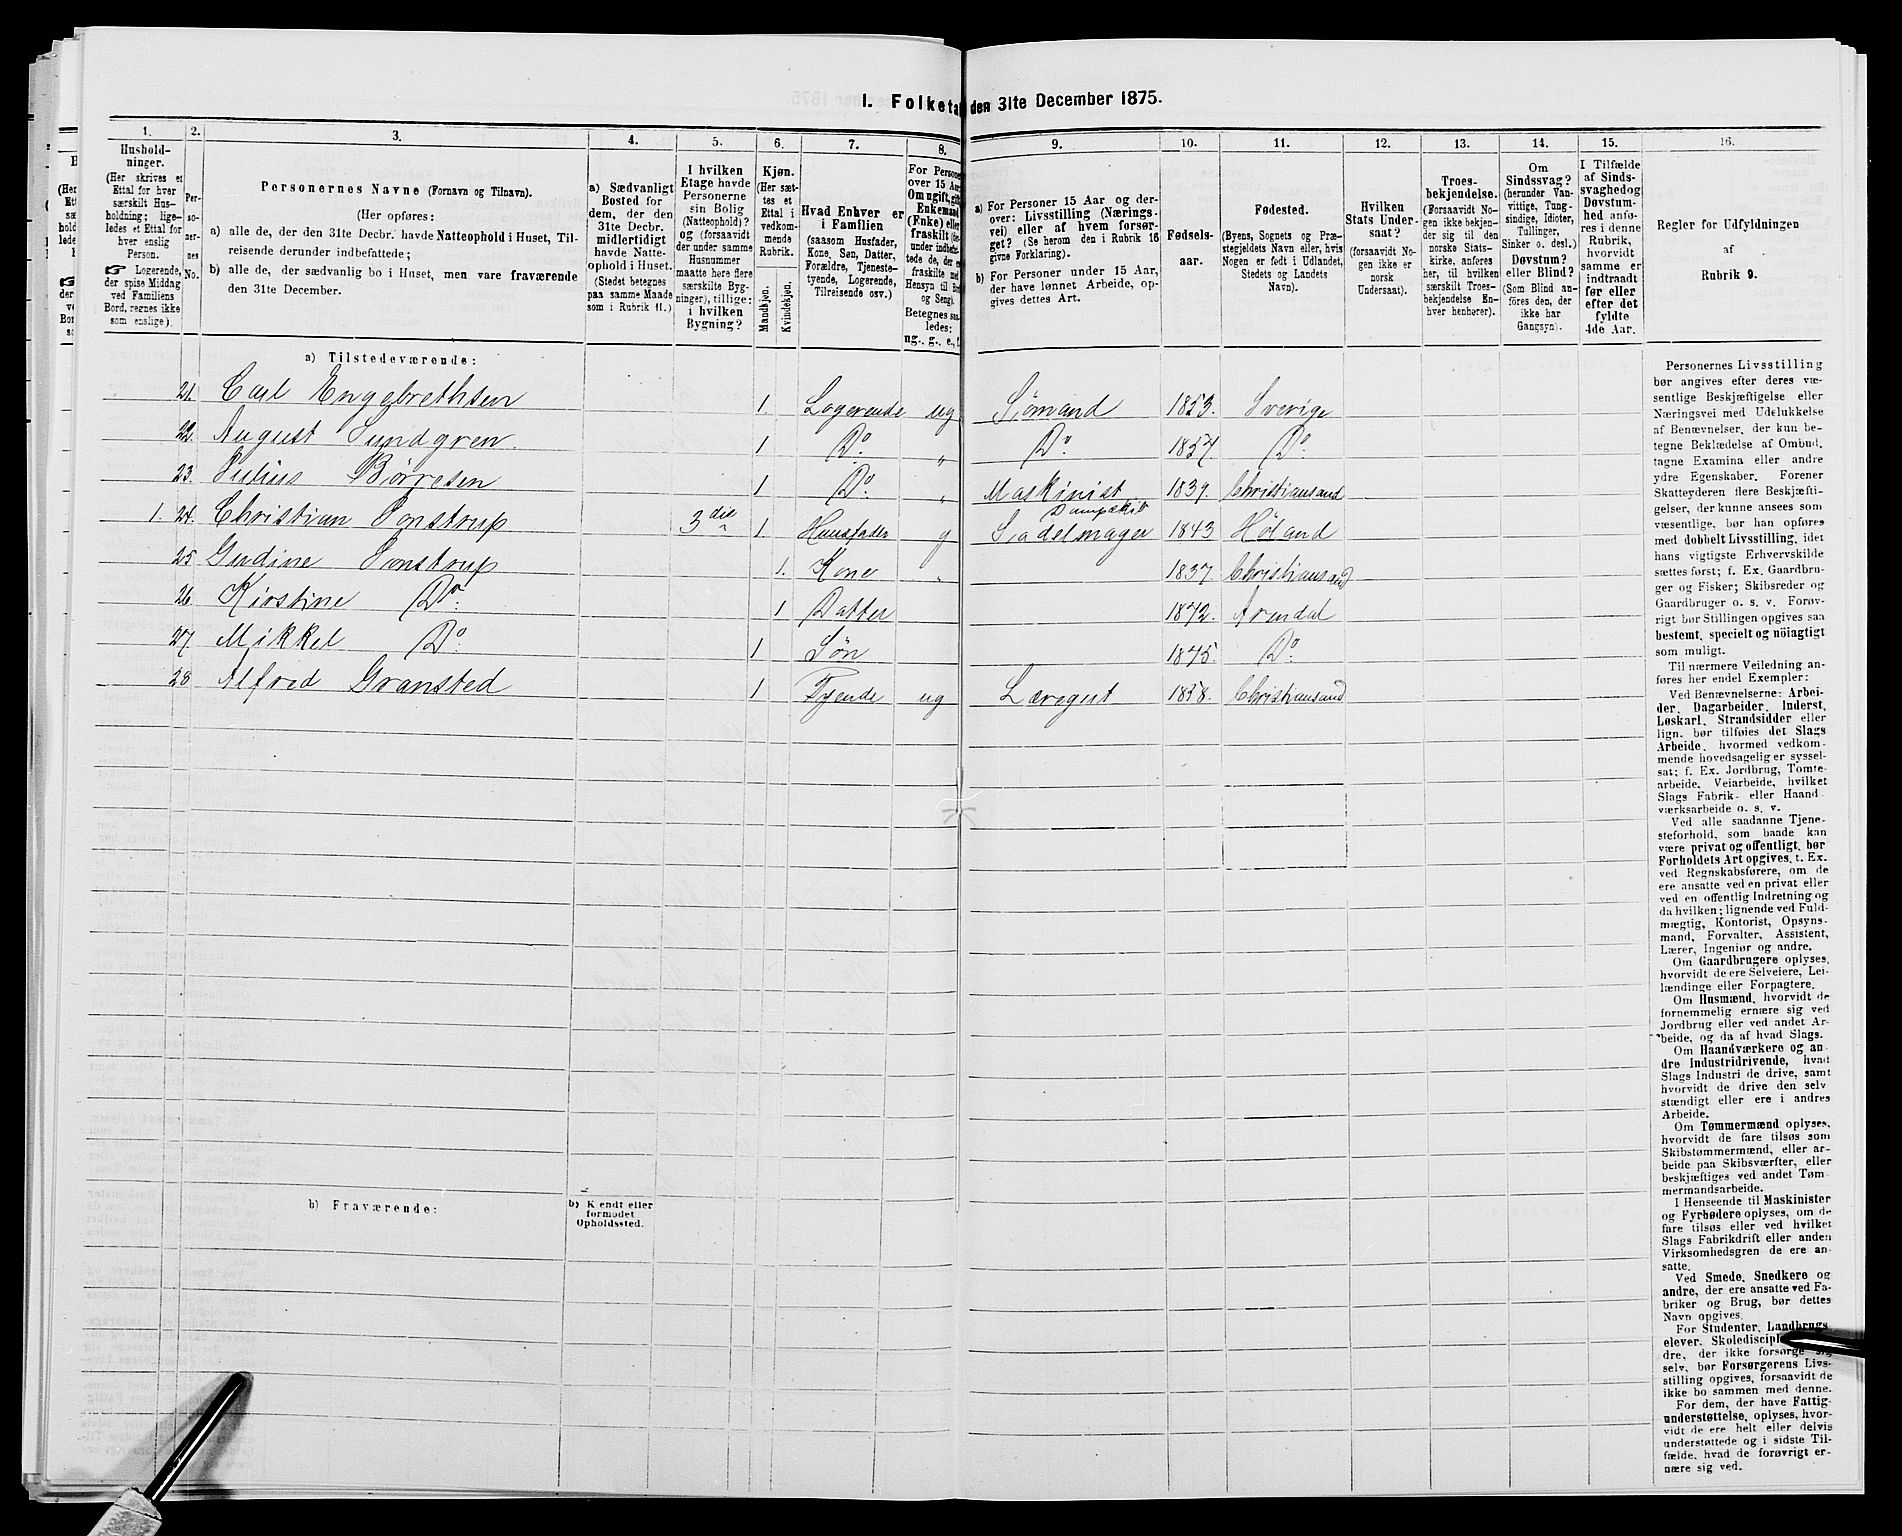 I. Folketa den 31te December 1875.
1. 2. 3. 4. 5. 6. 7. 8. 9. 10. 11. 12. 13. 14. 15. 16.
Hushold-
ninger.
(Her skrives et
Ettal for hver
særskilt Hus-
holdning; lige-
ledes et Ettal for
hver enslig
Person.
☞ Logerende,
der spise Middag
ved Familiens
Bord, regnes ikke
som enslige).
Per-
so-
ner-
nes
No.
Personernes Navne (Fornavn og Tilnavn).
(Her opføres:
a) alle de, der den 31te Decbr. havde Natteophold i Huset, Til-
reisende derunder indbefattede;
b) alle de, der sædvanlig bo i Huset, men vare fraværende
den 31te December.
a) Sædvanligt
Bosted for
dem, der den
31te Decbr.
midlertidigt
havde Natte-
ophold i Huset.
(Stedet betegnes
paa samme Maade
som i Rubrik 11.)
I hvilken
Etage havde
Personerne
sin Bolig
(Natteophold)?
og (forsaavidt
der under samme
Husnummer
maatte høre flere
særskilte Byg-
ninger), tillige:
i hvilken
Bygning?
Kjøn.
(Her sæt-
tes et
Ettal i
vedkom-
mende
Rubrik.
Mandkjøn.
Kvindekjøn.
Hvad Enhver er
i Familien
(saasom Husfader,
Kone, Søn, Datter,
Forældre, Tjeneste-
tyende, Logerende,
Tilreisende osv.)
For Persone
over 15 Aar
Om ugift, gift
Enkemand
(Enke) eller
fraskilt
under indbefat-
tede de, der ere
fraskilte med
Hensyn til Bo
og Seng).
Betegnes saa-
ledes:
ug., g., e., f.
a) For Personer 15 Aar og der-
over: Livsstilling (Nærings-
vei) eller af hvem forsør-
get? (Se herom den i Rubrik 16
givne Forklaring).
b) For Personer under 15 Aar,
der have lønnet Arbeide, op-
gives dettes Art.
Fødsels-
aar.
Fødested.
(Byens, Sognets og Præ-
stegjeldets Navn eller, hvis
Nogen er født i Udlandet,
Stedets og Landets
Navn).
Hvilken
Stats Under-
saat?
(forsaavidt No-
gen ikke er
norsk
Undersaat).
Troes-
bekjendelse.
(Forsaavidt No-
gen ikke bekjen-
der sig til den
norske Stats-
kirke, anføres
her, til hvilken
særskilt Troes-
bekjendelse En-
hver henhører).
Om
Sindssvag?
(herunder Van-
vittige, Tung-
sindige, Idioter,
Tullinger,
Sinker o. desl.)
Døvstum?
eller Blind?
(Som Blind an-
føres den, der
ikke har
Gangsyn).
I Tilfælde
af Sinds-
svaghed og
Døvstum-
hed anfø-
res i denne
Rubrik,
hvorvidt
samme er
indtraadt
før eller
efter det
fyldte
4de Aar.
Regler for Udfyldningen
af
Rubrik 9.
a) Tilstedeværende:
21. Carl Engebrethsen 1. Logerende ug Sømand 1853. Sverige
22. August Sundgren. 1 Do. „ Do. 1857. Do.
23. Julius Børresen 1 Do. „ Maskinist Dampskib 1839. Christiansand
1. 24. Christian Tonstrup 3die 1 Huusfader g Sadelmager 1843 Høland
25 Gudine Tonstrup 1. Kone „ 1837. Christiansand
26. Kirstine Do. 1 Datter 1872. Arendal
27. Mikkel Do. 1 Søn 1875. Do.
28 Alfred Gransted 1 Tyende ug Læregut 1858. Christiansand
b) Fraværende:
b) Kjendt eller
formodet
Opholdssted.
Personernes Livsstilling
bør angives efter deres væ-
sentlige Beskjæftigelse eller
Næringsvei med Udelukkelse
af Benævnelser, der kun be-
tegne Beklædelse af Ombud,
tagne Examina eller andre
ydre Egenskaber. Forener
Skatteyderen flere Beskjæfti-
gelser, der kunne ansees som
væsentlige, bør han opføres
med dobbelt Livsstilling, idet
hans vigtigste Erhvervskilde
sættes først; f. Ex. Gaardbru-
ger og Fisker; Skibsreder og
Gaardbruger o. s. v. Forøv-
rigt bør Stillingen opgives saa
bestemt, specielt og nöiagtigt
som muligt.
Til nærmere Veiledning an-
føres her endel Exempler:
Ved Benævnelserne: Arbei-
der, Dagarbeider, Inderst,
Løskarl, Strandsidder eller
lign. bør tilføies det Slags
Arbeide, hvormed vedkom-
mende hovedsagelig er syssel-
sat; f. Ex. Jordbrug, Tomte-
arbeide, Veiarbeide, hvilket
Slags Fabrik- eller Haand-
værksarbeide o. s. v.
Ved alle saadanne Tjene-
steforhold, som baade kan
være privat og offentligt, bør
Forholdets Art opgives, t. Ex.
ved Regnskabsførere, om de
ere ansatte ved en privat eller
ved en offentlig Indretning og
da hvilken; lignende ved Fuld-
mægtig, Kontorist, Opsyns-
mand, Forvalter, Assistent,
Lærer, Ingeniør og andre.
Om Gaardbrugere oplyses,
hvorvidt de ere Selveiere, Lei-
lændinge eller Forpagtere.
Om Husmænd, hvorvidt de
fornemmelig ernære sig ved
Jordbrug eller ved andet Ar-
beide, og da af hvad Slags.
Om Haandværkere og an-
dre Industridrivende, hvad
Slags Industri de drive, samt
hvorvidt de drive den selv-
stændigt eller ere i andres
Arbeide.
Om Tømmermænd oplyses,
hvorvidt de fare tilsøs som
Skibstømmermænd, eller ar-
beide paa Skibsværfter, eller
beskjæftiges ved andet Tøm-
mermandsarbeide.
I Henseende til Maskinister
og Fyrbødere oplyses, om de
fare tilsøs eller ved hvilket
Slags Fabrikdrift eller anden
Virksomhedsgren de ere an-
satte.
Ved Smede, Snedkere og
andre, der ere ansatte ved Fa-
briker og Brug, bør dettes
Navn opgives.
For Studenter, Landbrugs-
elever, Skoledisciple
dre, der ikke forsørge sig
selv, bør Forsørgerens Livs-
stilling opgives, forsaavidt de
ikke bo sammen med denne.
For dem, der have Fattig-
understøttelse, oplyses, hvor-
vidt de ere helt eller delvis
understøttede og i sidste Til-
fælde, hvad de forøvrigt er-
nære sig ved.